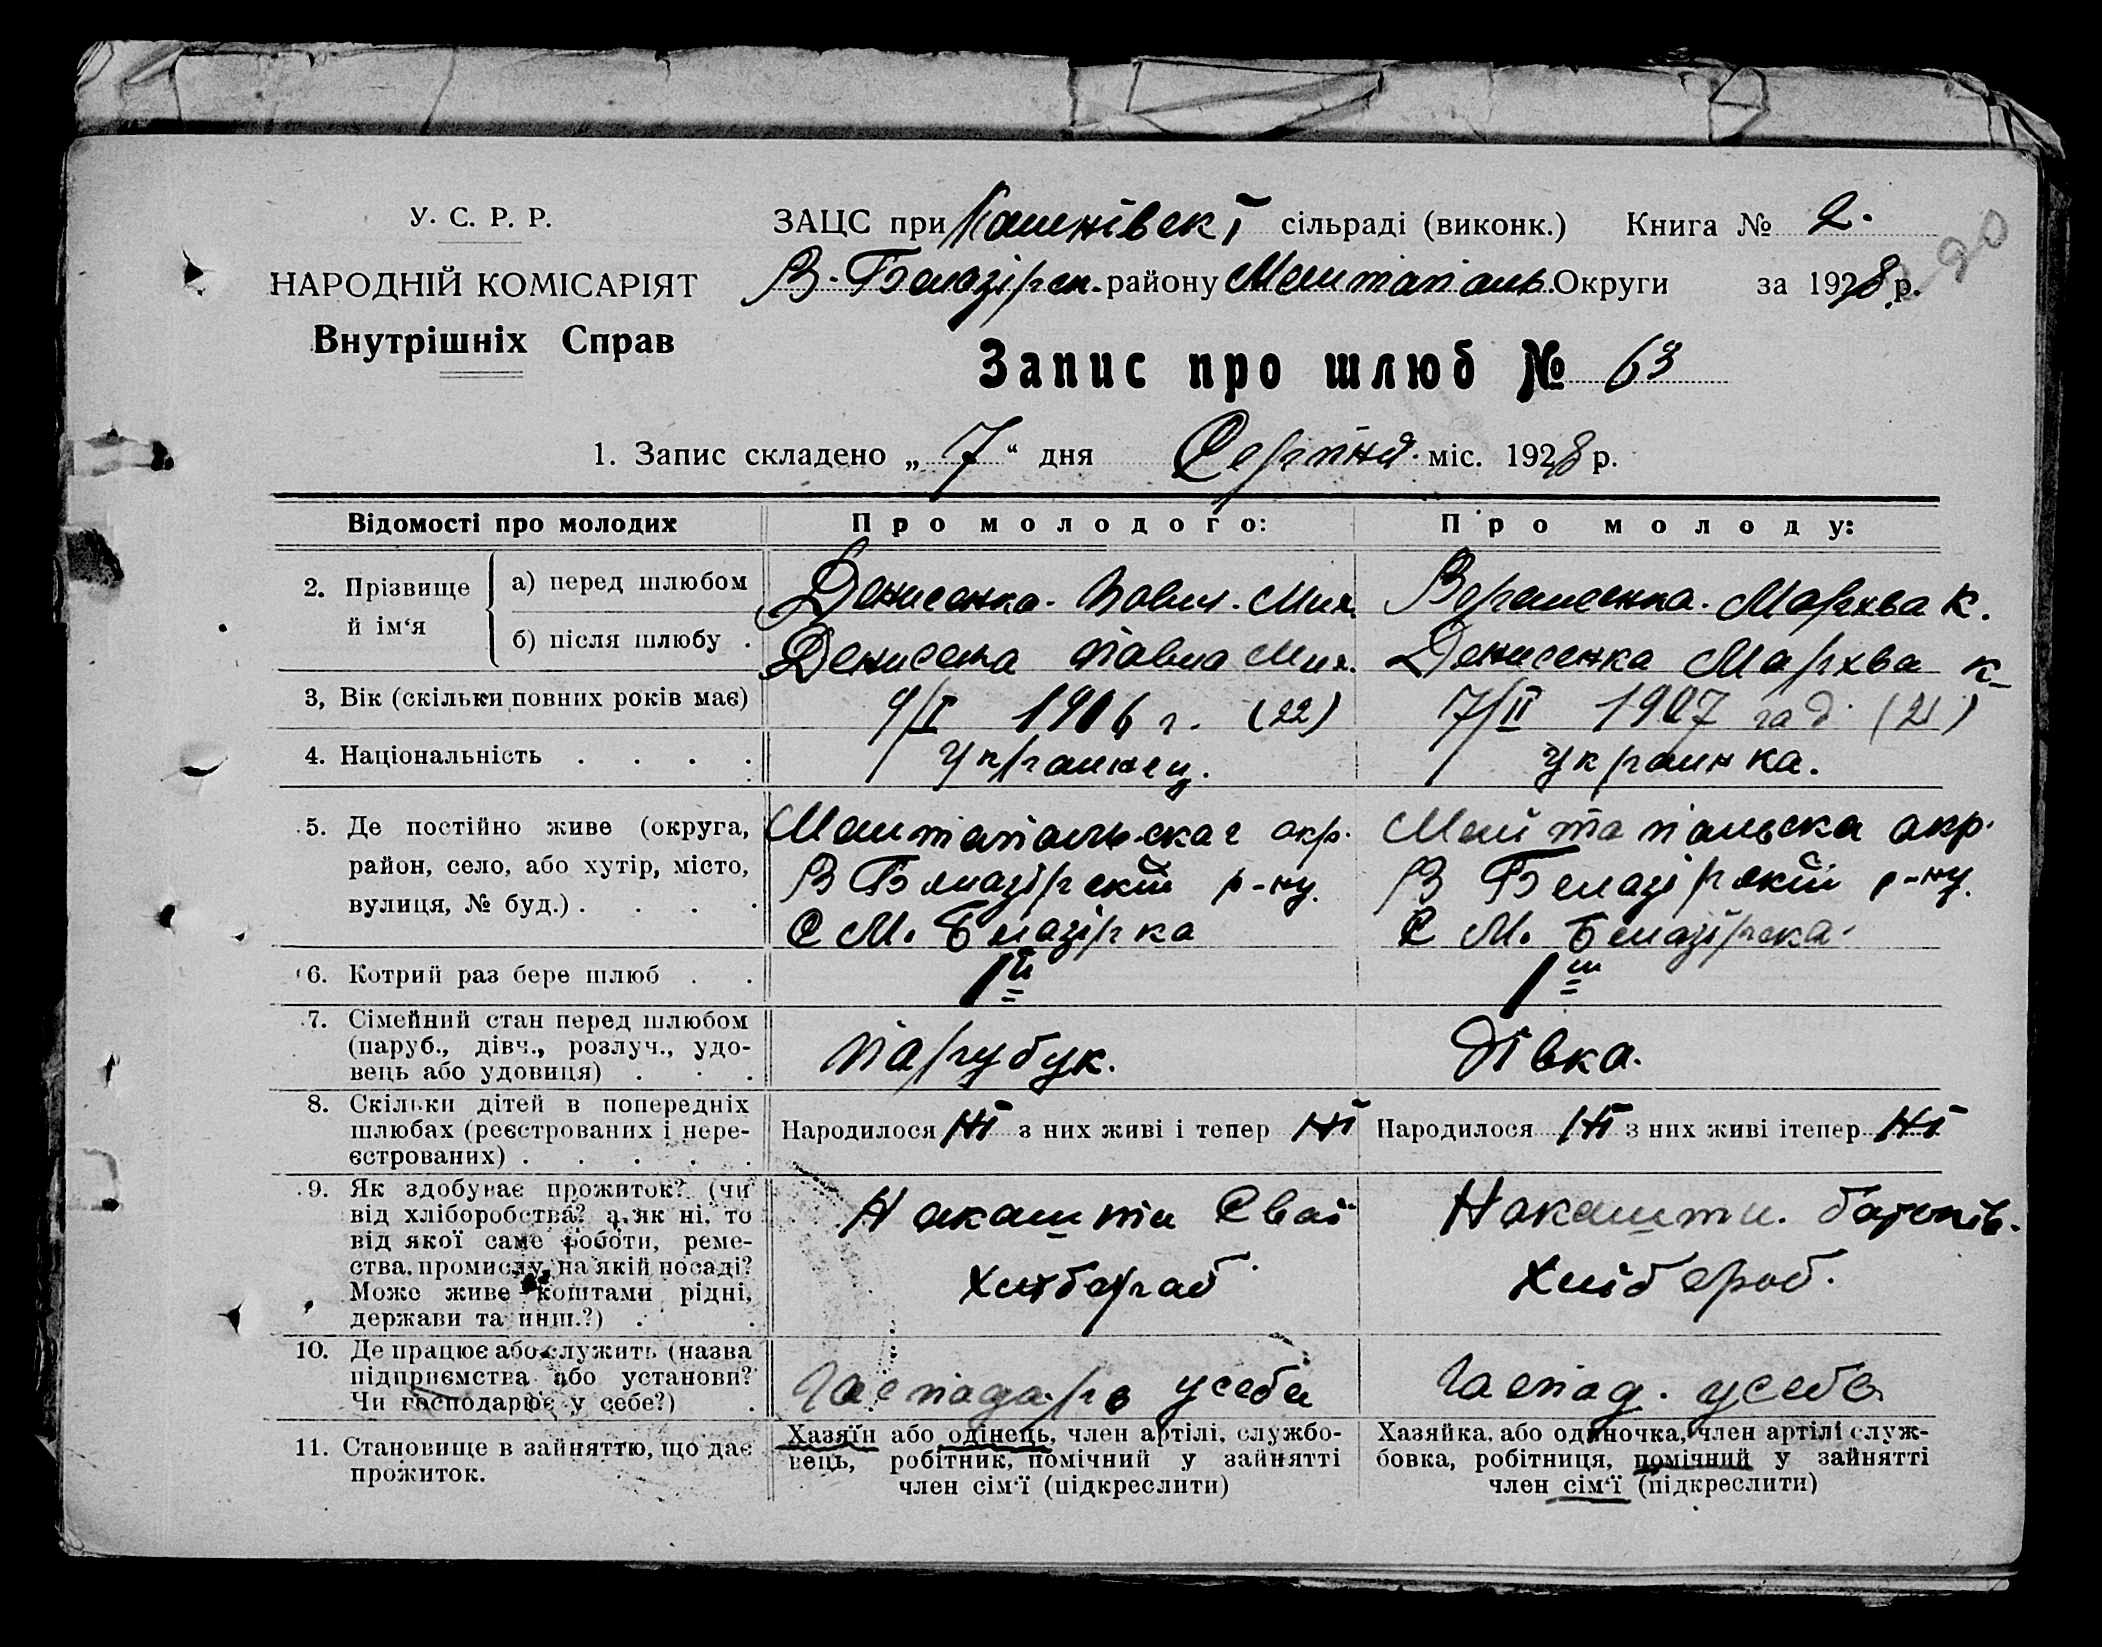 У. С. Р. Р.
НАРОДНІЙ КОМІСАРІЯТ
Внутрішніх Справ
ЗАЦС при сільраді (виконк.) Книга № 2.
220
В. Белазірск. району Мелитапаль. Округи за 1928 р.
Запис про шлюб № 63
1. Запис складено „ 7 “ дня Серпня міс. 1928 р.
Відомості про молодих
Про молодого:
Про молоду:
2. Прізвище й ім‘я
а) перед шлюбом
Денисенка. Павил. Мих.
Мархва К.
б) після шлюбу .
Денисенка Павла Мих.
Денисенка Мархва К
3, Вік (скільки повних років має)
9/I 1906 г. (22)
7/II 1907 год (21)
4. Національність . . . .
украинец.
украинка.
5. Де постійно живе (округа,
район, село, або хутір, місто,
вулиця, № буд.) . . . .
Мелитапальскаг окр.
В Белазірскій р-ну.
С М. Белазірка
Мелитапальска окр.
В Белазірскій р-ну.
С М. Белазірска.
6. Котрий раз бере шлюб . .
1й
1ш
7. Сімейний стан перед шлюбом
(паруб., дівч., розлуч., удо-
вець або удовиця) . . .
Парубук.
Дівка.
8. Скільки дітей в попередніх
шлюбах (реєстрованих і нере-
єстрованих) . . . . .
Народилося Ні з них живі і тепер Ні
Народилося Ні з них живі ітепер Ні
9. Як здобуває прожиток? (чи
від хліборобства? а як ні, то
від якої саме роботи, реме-
ства, промислу, на якій посаді?
Може живе коштами рідні,
держави та инш.?) . .
Накашти Сваї
Хлібераб
Накашти. батьків.
Хлібероб.
10. Де працює або служить (назва
підприємства або установи?
Чи господарює у себе?) .
Гаспадарь усебе
Гаспад. усебе
11. Становище в зайняттю, що дає
прожиток.
Хазяїн або одінець, член артілі, службо-
вець, робітник, помічний у зайнятті
член сім‘ї (підкреслити)
Хазяйка, або одиночка, член артілі служ-
бовка, робітниця, помічний у зайнятті
член сім‘ї (підкреслити)